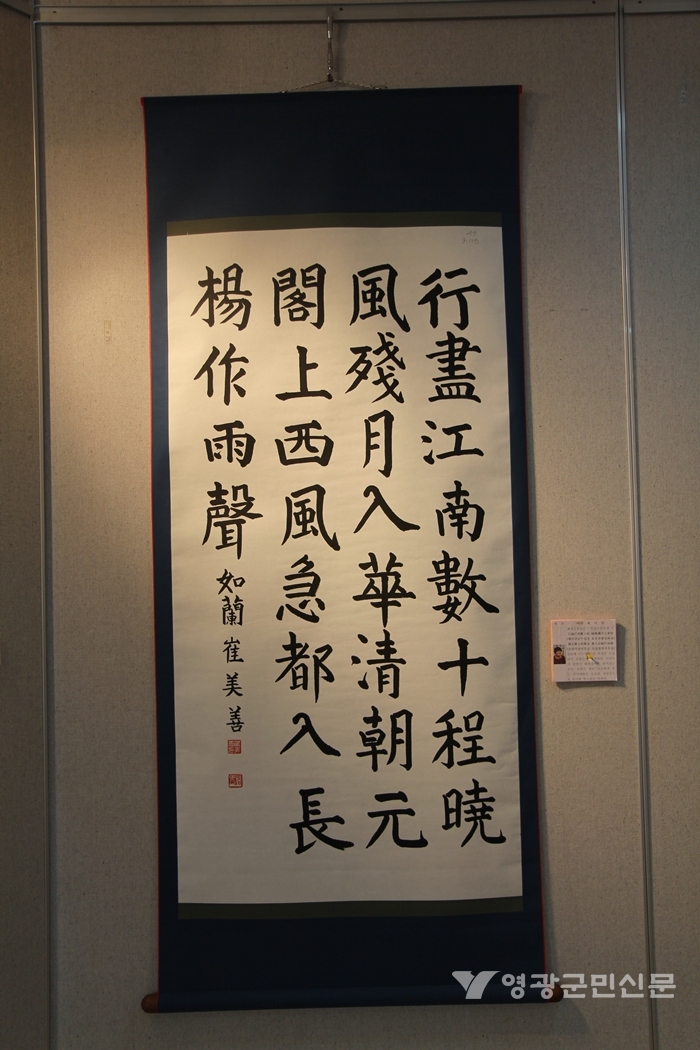 行盡江南數十程曉
風殘月入華清朝元
閣上西風急都入長
楊作雨聲
如蘭崔美善
영광군민신문